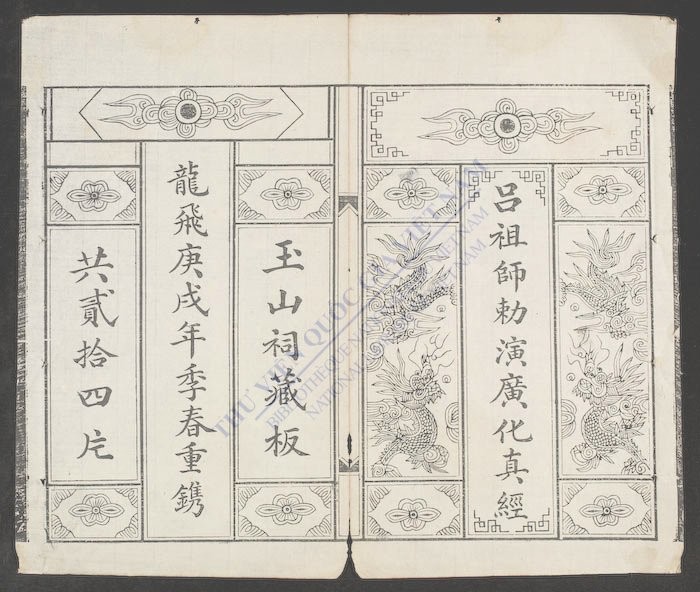 呂祖師勅演廣化真經
玉山祠藏板
龍飛庚戌年季春重鐫
共貳拾四片
THƯ VIỆN QUỐC GIA VIỆT NAM
BIBLIOTHÈQUE NATIONALE DU VIETNAM
NATIONAL LIBRARY OF VIETNAM